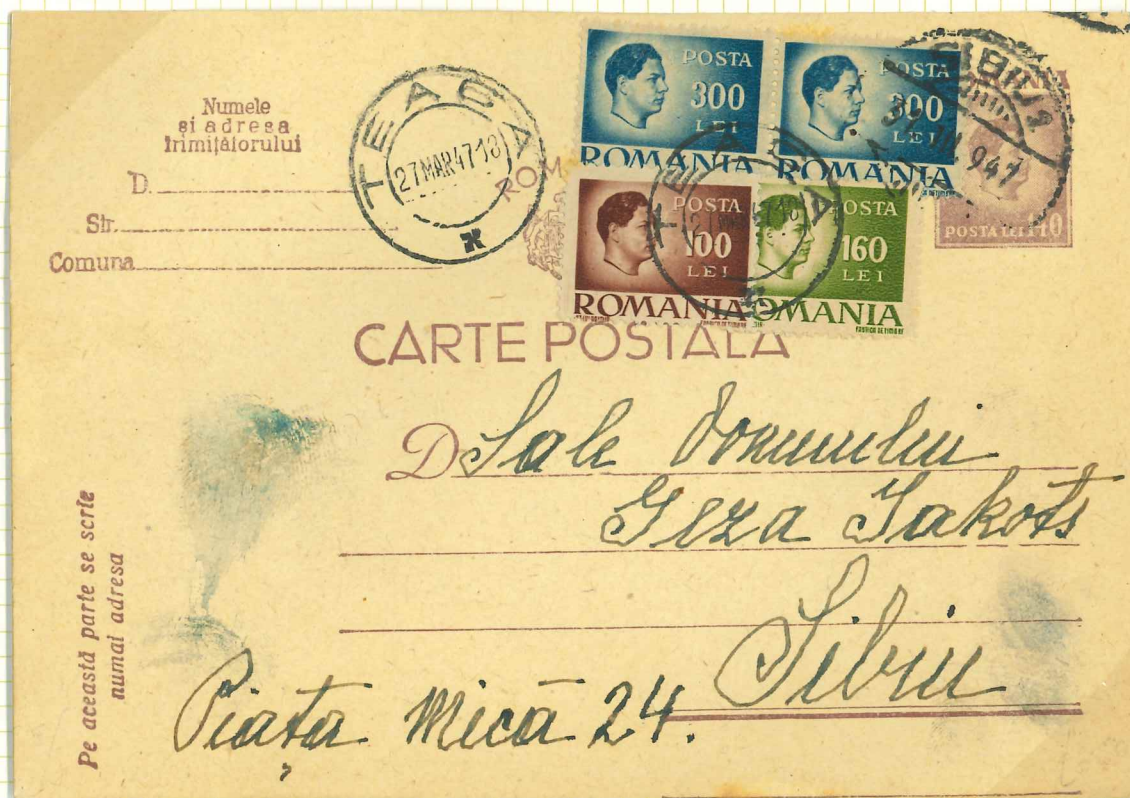 Numele
și adresa
trimițătorului
D.
Str.
Comuna
TEACA
27.MAR.47.18
ROM
POSTA
300
LEI
ROMANIA
POSTA
300
LEI
ROMANIA
POSTA
100
LEI
ROMANIA
POSTA
160
LEI
ROMANIA
FABRICA DE TIMBRE
SIBIU
947
POSTA LEI
CARTE POSTALA
D Sale Domnului
Geza Jakots
Sibiu
Piața Mică 24.
Pe această parte se scrie
numai adresa